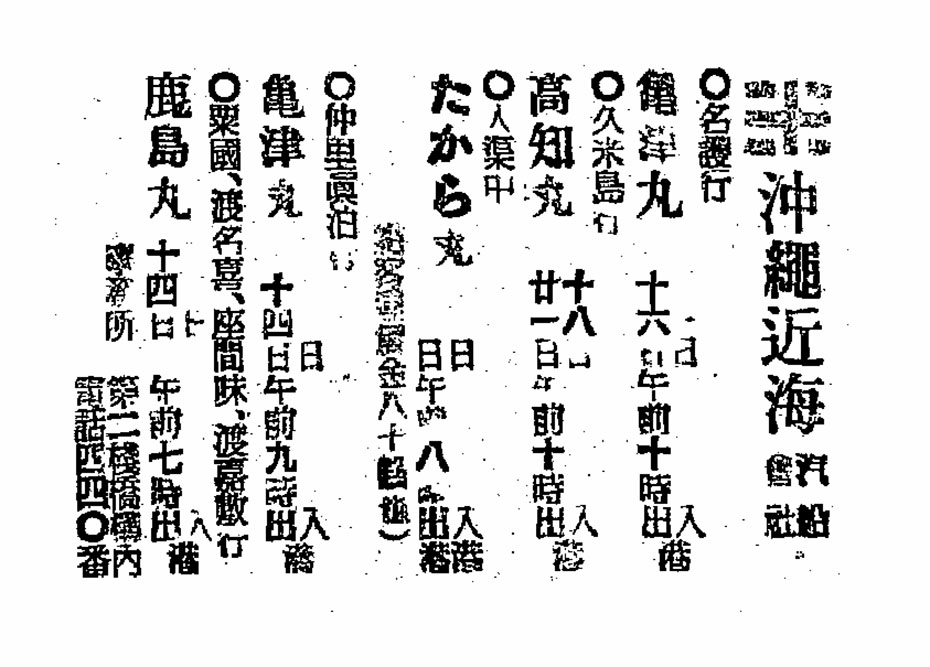 沖繩近海汽船會社
〇名護行
龜津丸 十六日午前十時出入港
〇久米島行
高知丸 十八日 廿一日午前十時出入港
〇入渠中
たから丸 日 日午 八 入港 出港
金八十
〇仲里眞泊行
亀津丸 日 十四日午前九時出入港
〇粟國、渡名喜、座間味、渡嘉敷行
鹿島丸 十四日 午前七時出入港
所 第二棧橋構內
電話四四〇番